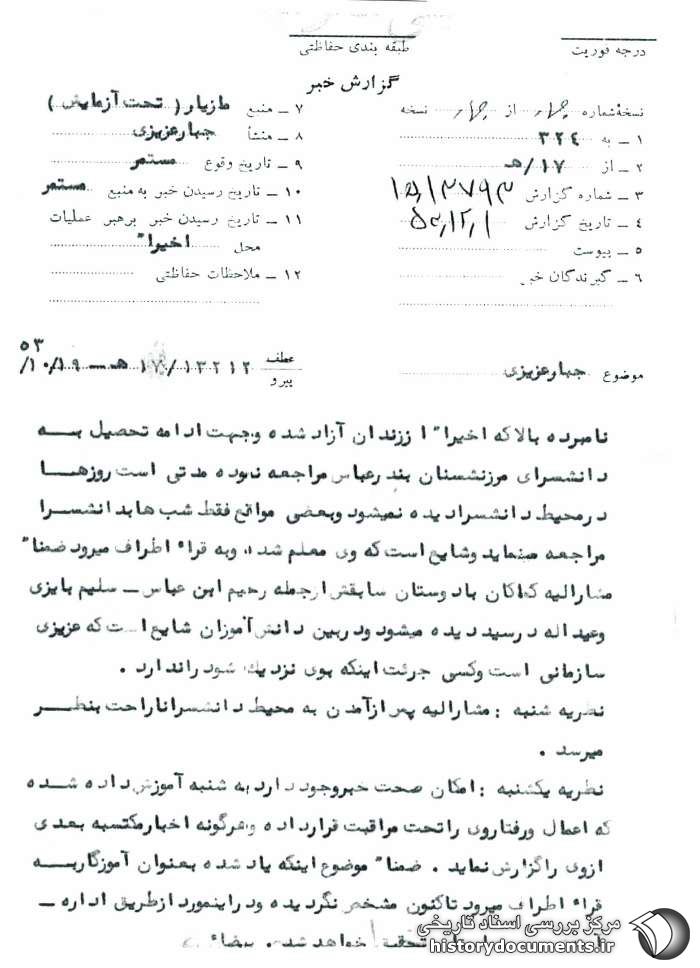 درجه فوریت
طبقه بندی حفاظتی
گزارش خبر
نسخهٔ شماره چهار از چهار نسخه
۱ ــ به ۳۲۴
۲ ــ از ۱۷/هـ
۳ ــ شماره گزارش
۴ ــ تاریخ گزارش
۵ ــ پیوست
۶ ــ گیرندگان خبر
۷ ــ منبع مازیار ( تحت آزمایش )
۸ ــ منشأ جبار عزیزی
۹ ــ تاریخ وقوع مستمر
۱۰ ــ تاریخ رسیدن خبر به منبع مستمر
۱۱ ــ تاریخ رسیدن خبر برهبر عملیات
محل اخیرا"
۱۲ ــ ملاحظات حفاظتی
موضوع جبار عزیزی
عطف
پیرو
۱۳۲۱۲ /۱۷ هـ ــ ۱۰/۱۹/
۵۳
نامبرده بالا که اخیرا" از زندان آزاد شده وجهت ادامه تحصیل بــه
دانشسرای مرزنشینان بندرعباس مراجعه نموده مدتی است روزهــا
درمحیط دانشسرا دیده نمیشود وبعضی مواقع فقط شب ها بدانشسرا
مراجعه مینماید وشایع است که وی معلم شده وبه قراء اطراف میرود ضمنا"
مشارالیه کماکان با دوستان سابقش ازجمله رحیم ابن عباس ــ سلیم بایزی
وعبداله درسید دیده میشود ودربین دانش آموزان شایع است که عزیزی
سازمانی است وکسی جرئت اینکه بوی نزدیك شود راندارد .
نظریه شنبه : مشارالیه پس ازآمدن به محیط دانشسرا ناراحت بنظــر
میرسد .
نظریه یکشنبه : امکان صحت خبر وجود دارد به شنبه آموزش داده شــده
که اعمال ورفتار وی را تحت مراقبت قرارداده وهرگونه اخبار مکتسبه بعدی
ازوی را گزارش نماید . ضمنا" موضوع اینکه یاد شده بعنوان آموزگار بــه
قراء اطراف میرود تاکنون مشخص نگردیده ودراینمورد ازطریق اداره ــ
تحقیق خواهد شد .
مرکز بررسی اسناد تاریخی
historydocuments.ir